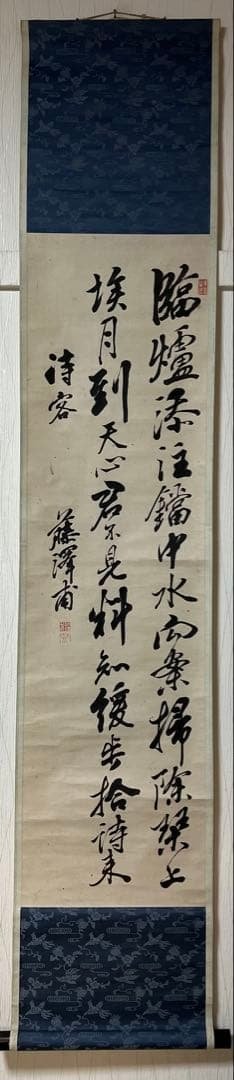 臨爐添注鐺中水向案掃除琴上
埃月到天心君不見料知緩歩拾詩来
待客
藤澤甫